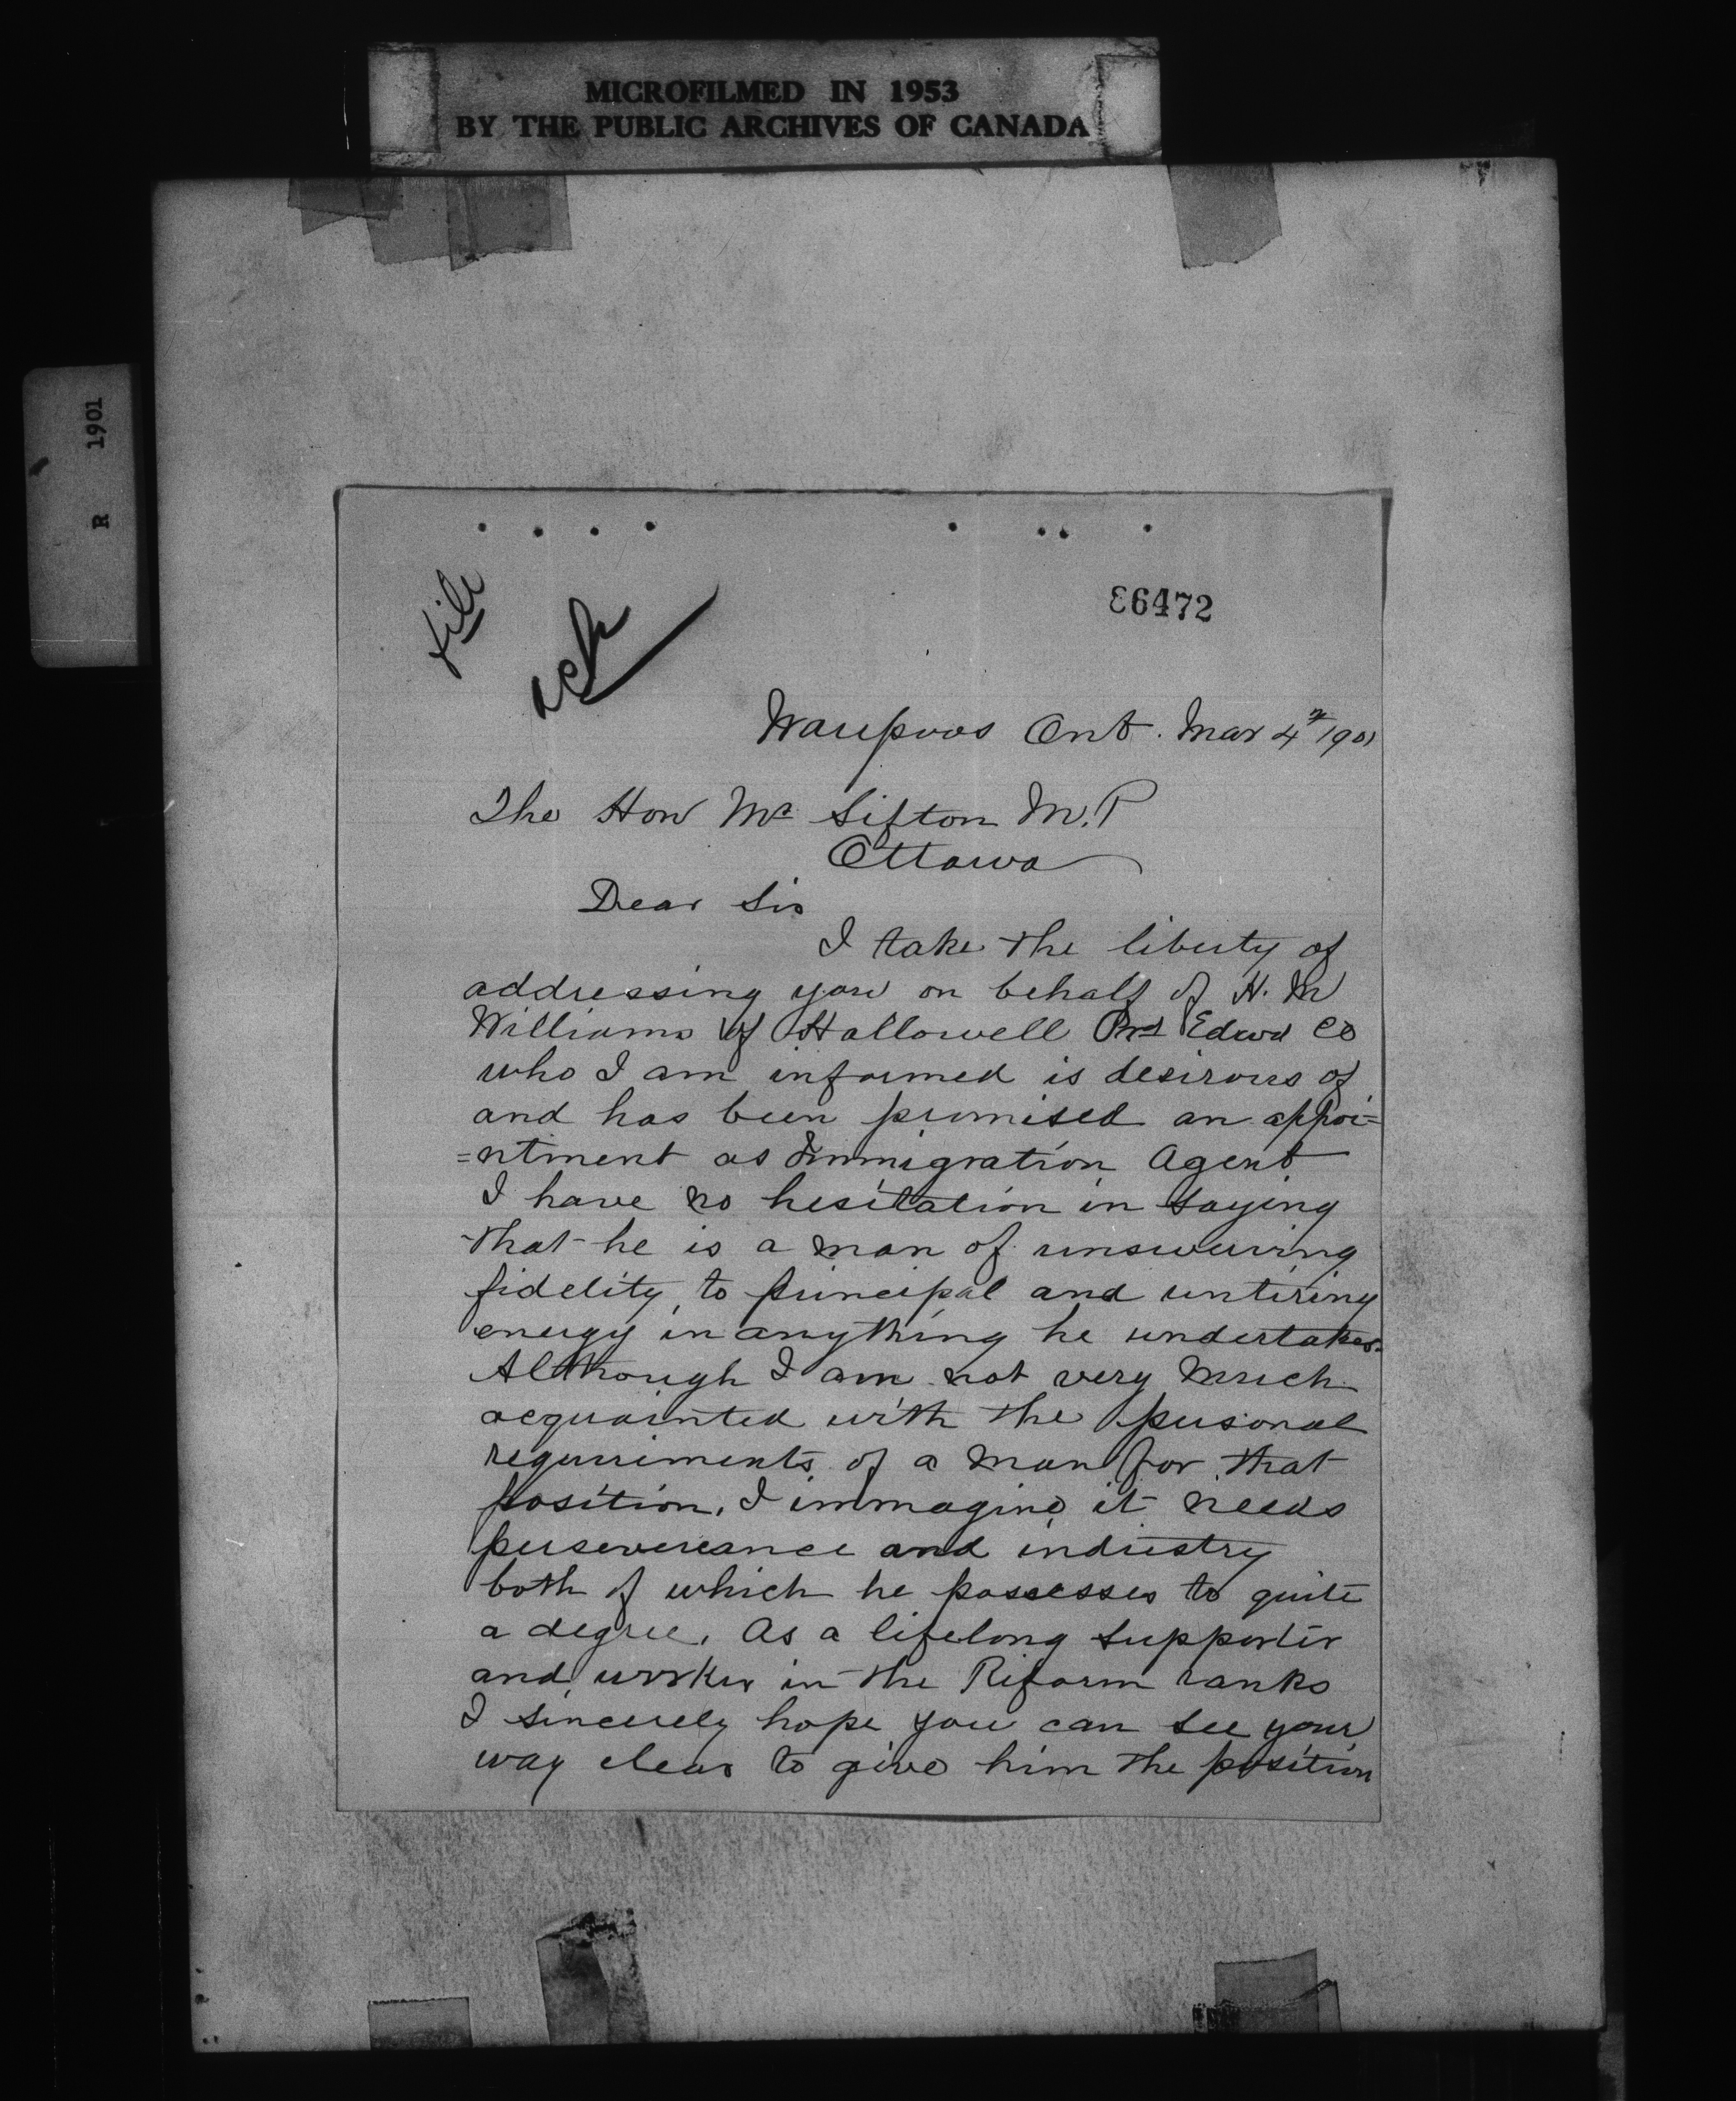 MICROFILMED IN 1953
BY THE PUBLIC ARCHIVES OF CANADA
R 1901
file
86472
Waupoos Ont. Mar 4th 1901
The Hon Mr Sifton M.P
Ottawa
Dear Sir
I take the liberty of
addressing you on behalf of H. M
Williams of Hallowell Pr Edwd Co
who I am informed is desirous of
and has been promised an appoi=
=ntment as Immigration Agent
I have no hesitation in saying
that he is a man of unswerving
fidelity to principal and untiring
energy in anything he undertakes.
Although I am not very much
acquainted with the personal
requriments of a man for that
position, I immagine it needs
persevereance and industry
both of which he possesses to quite
a degree. As a lifelong supporter
and worker in the Reform ranks
I sincerely hope you can see your
way clear to give him the position